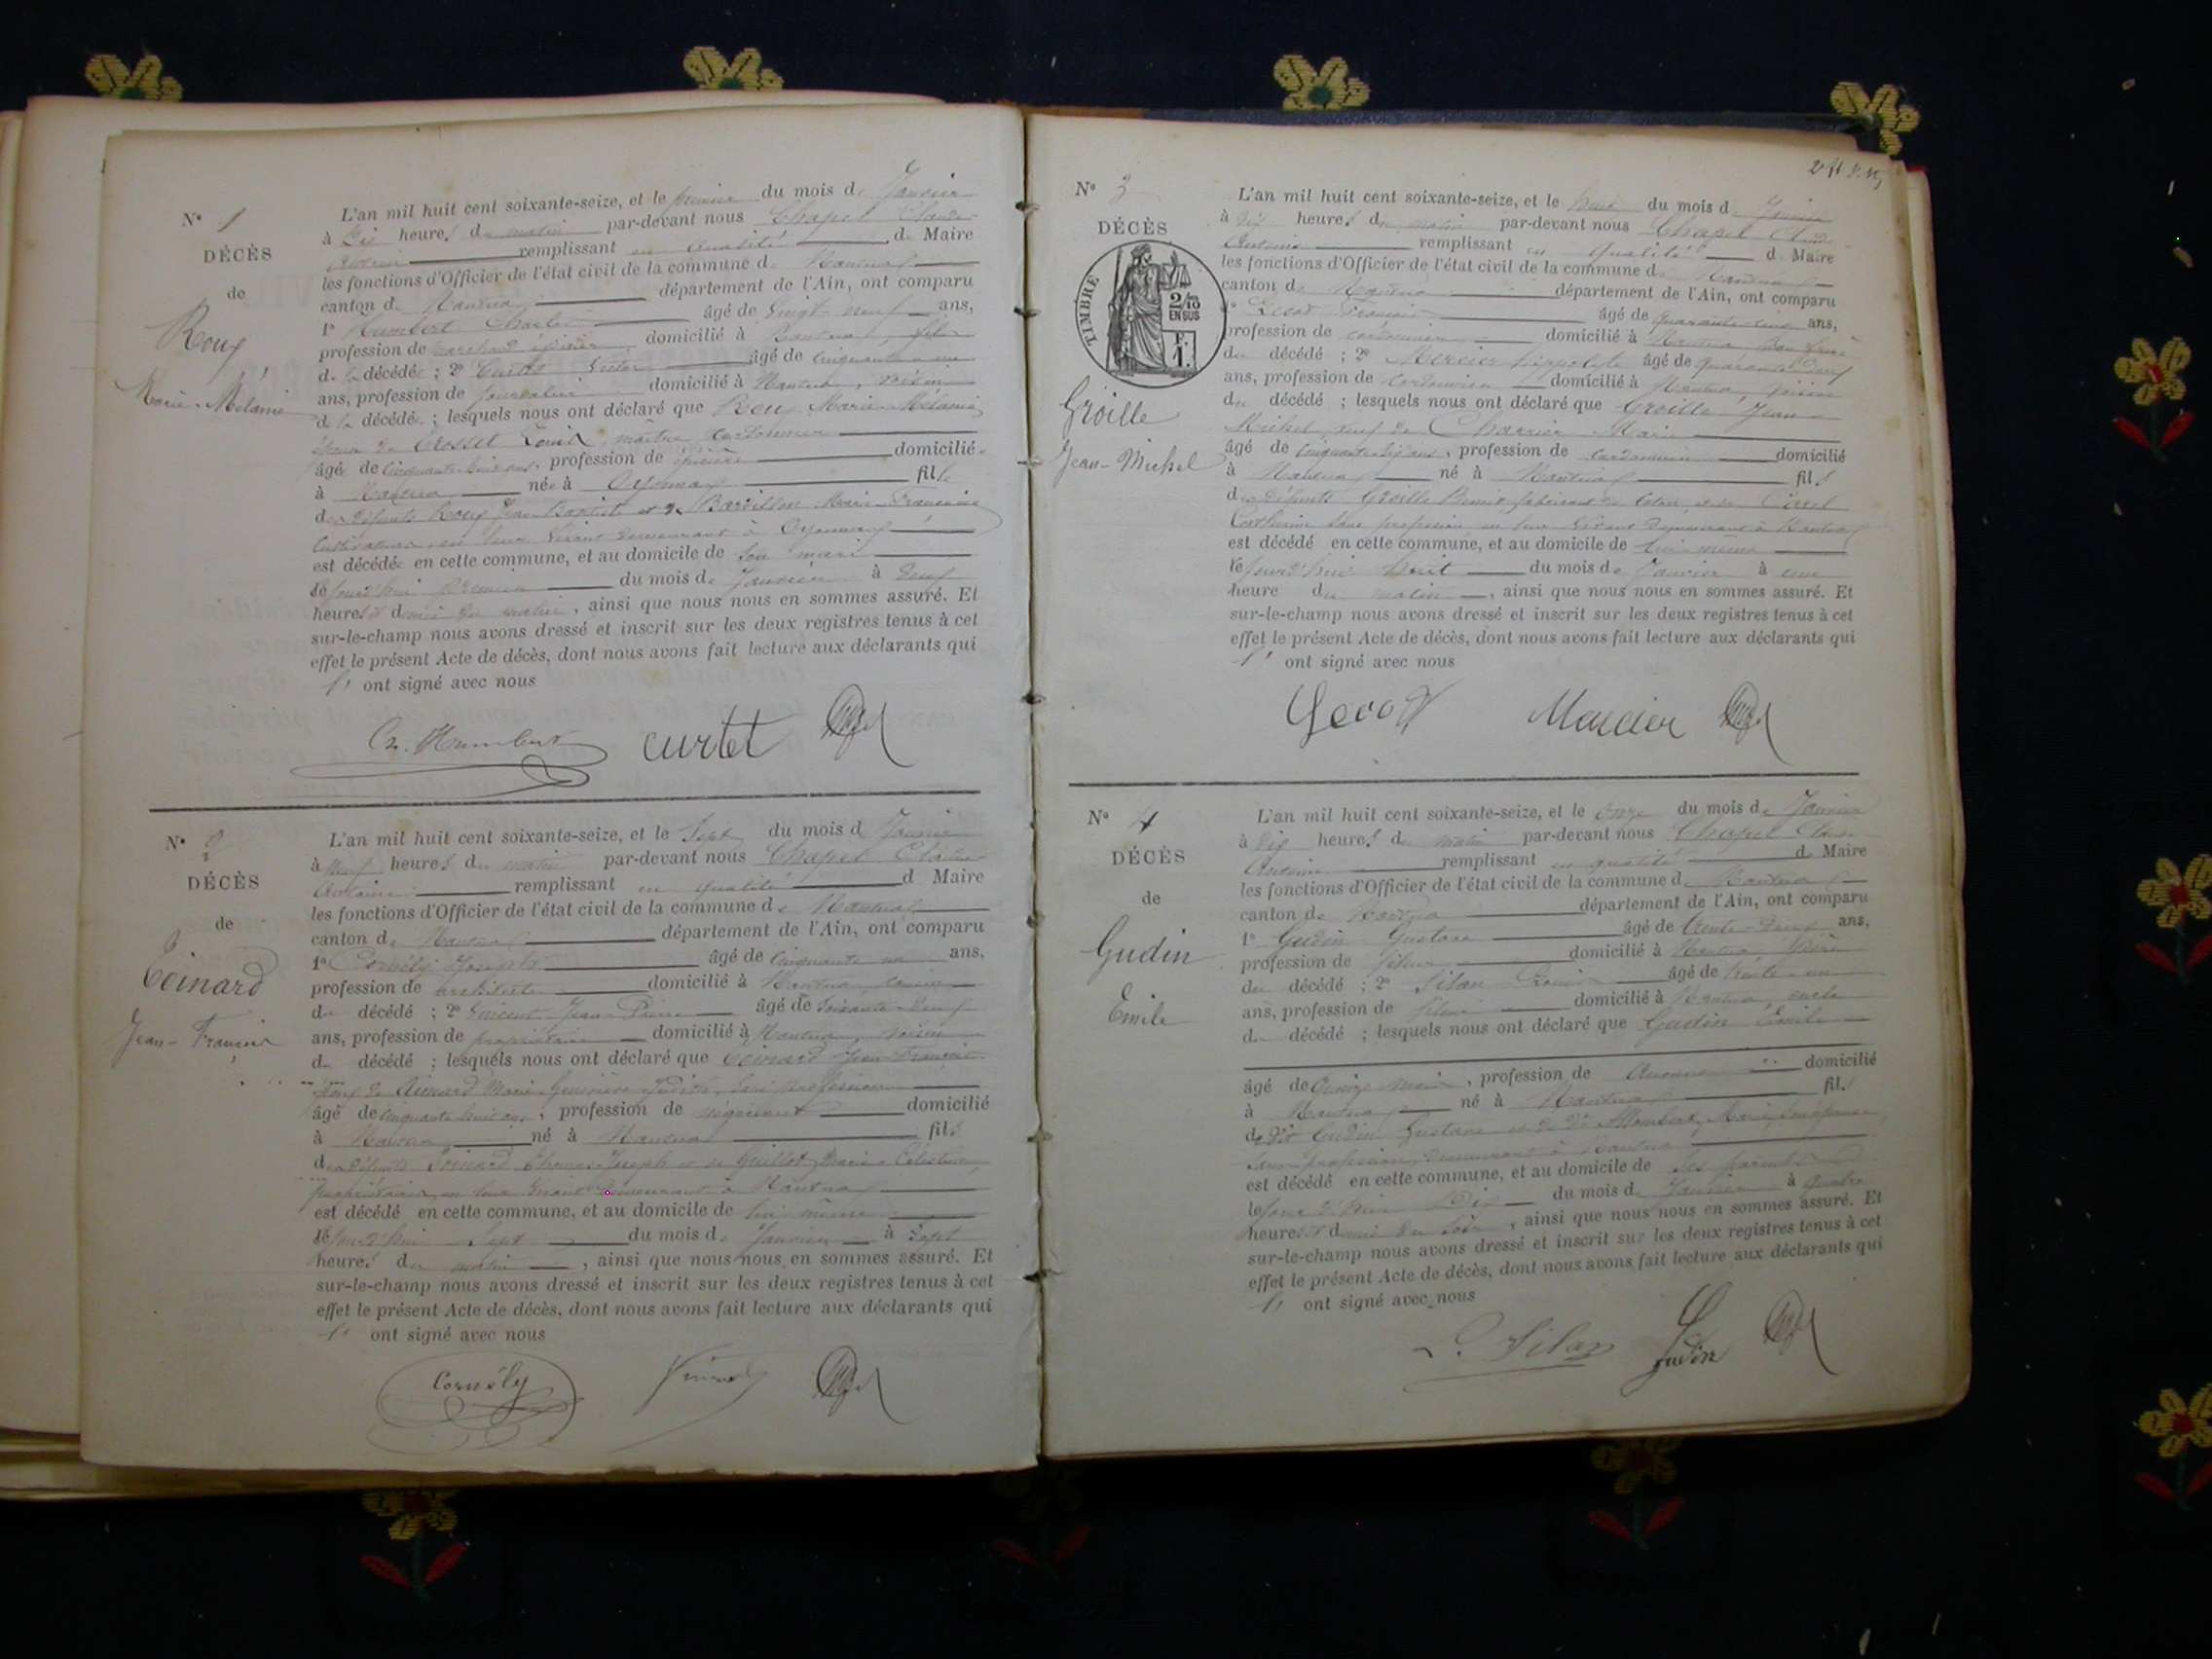 N° 1
DÉCÈS
de
Roux
Marie-Mélanie
L'an mil huit cent soixante-seize, et le premier du mois de Janvier
à Dix heures du matin par-devant nous Chapel Claude
Antoine remplissant en qualité de Maire
les fonctions d'Officier de l'état civil de la commune de Nantua
canton de Nantua département de l'Ain, ont comparu
1° Humbert Charles âgé de Vingt-neuf ans,
profession de marchand épicier domicilié à Nantua,
de la décédée ; 2° Curtet âgé de Cinquante
ans, profession de journalier domicilié à Nantua, voisin
de la décédée ; lesquels nous ont déclaré que Roux Marie-Mélanie
épouse de Crosset Louis, maître Cordonnier
âgée de Cinquante-huit ans, profession de épicière domiciliée
à Nantua née à Oyonnax fille
des défunts Roux Jean-Baptiste et de Barvillon Marie-Françoise
Cultivateurs, en leur vivant demeurant à Oyonnax
est décédée en cette commune, et au domicile de son mari
le jourd'hui Premier du mois de Janvier à neuf
heures et demie du matin, ainsi que nous nous en sommes assuré. Et
sur-le-champ nous avons dressé et inscrit sur les deux registres tenus à cet
effet le présent Acte de décès, dont nous avons fait lecture aux déclarants qui
ont signé avec nous
Ch. Humbert curtet
N° 2
DÉCÈS
de
Coinard
Jean-François
L'an mil huit cent soixante-seize, et le Sept du mois de Janvier
à neuf heures du matin par-devant nous Chapel Claude
Antoine remplissant en qualité d Maire
les fonctions d'Officier de l'état civil de la commune de Nantua
canton de Nantua département de l'Ain, ont comparu
1° Cornély Joseph âgé de Cinquante ans,
profession de architecte domicilié à Nantua,
du décédé ; 2° Vincent Jean-Pierre âgé de Soixante-
ans, profession de propriétaire domicilié à Nantua, voisin
du décédé ; lesquels nous ont déclaré que Coinard Jean-François
époux de Aimard Marie Geneviève Judith, sans profession
âgé de Cinquante-huit ans, profession de négociant domicilié
à Nantua né à Nantua fils
des défunts Coinard Thomas-Joseph et de Guillot Marie-Célestine
propriétaires, en leur vivant demeurant à Nantua
est décédé en cette commune, et au domicile de lui-même
le jourd'hui Sept du mois de Janvier à Sept
heures du matin, ainsi que nous nous en sommes assuré. Et
sur-le-champ nous avons dressé et inscrit sur les deux registres tenus à cet
effet le présent Acte de décès, dont nous avons fait lecture aux déclarants qui
ont signé avec nous
Cornély Vincent
N° 3
DÉCÈS
TIMBRE
2/10
EN SUS
F.
1.
Groille
Jean-Michel
L'an mil huit cent soixante-seize, et le huit du mois d Janvier
à dix heures du matin par-devant nous Chapel Claude
Antoine remplissant en qualité d Maire
les fonctions d'Officier de l'état civil de la commune de Nantua
canton de Nantua département de l'Ain, ont comparu
1° François âgé de quarante-cinq ans,
profession de cordonnier domicilié à Nantua
du décédé ; 2° Mercier hippolyte âgé de quarante-
ans, profession de Cordonnier domicilié à Nantua, voisin
du décédé ; lesquels nous ont déclaré que Groille, Jean-
Michel, veuf de Charrier Marie
âgé de Cinquante-six ans, profession de Cordonnier domicilié
à Nantua né à Nantua fils
des défunts Groille fabricant de Coton, et de
Catherine sans profession en leur vivant demeurant à Nantua
est décédé en cette commune, et au domicile de lui-même
le jourd'hui huit du mois de Janvier à une
heure du matin, ainsi que nous nous en sommes assuré. Et
sur-le-champ nous avons dressé et inscrit sur les deux registres tenus à cet
effet le présent Acte de décès, dont nous avons fait lecture aux déclarants qui
ont signé avec nous
Mercier
N° 4
DÉCÈS
de
Gudin
Emile
L'an mil huit cent soixante-seize, et le Onze du mois de Janvier
à dix heures du matin par-devant nous Chapel Claude
Antoine remplissant en qualité de Maire
les fonctions d'Officier de l'état civil de la commune de Nantua
canton de Nantua département de l'Ain, ont comparu
1° Gudin Gustave âgé de trente-deux ans,
profession de fileur domicilié à Nantua, père
du décédé ; 2° Silan Louis âgé de trente-un
ans, profession de fileur domicilié à Nantua, oncle
du décédé ; lesquels nous ont déclaré que Gudin Emile
âgé de Quinze mois, profession de Aucune domicilié
à Nantua né à Nantua fils
de dit Gudin Gustave et de de Allombert, Marie Joséphine
sans profession, demeurant à Nantua
est décédé en cette commune, et au domicile de ses parents
le jour d'hier Dix du mois de Janvier à quatre
heures et demie du soir, ainsi que nous nous en sommes assuré. Et
sur-le-champ nous avons dressé et inscrit sur les deux registres tenus à cet
effet le présent Acte de décès, dont nous avons fait lecture aux déclarants qui
ont signé avec nous
L. Silan Gudin